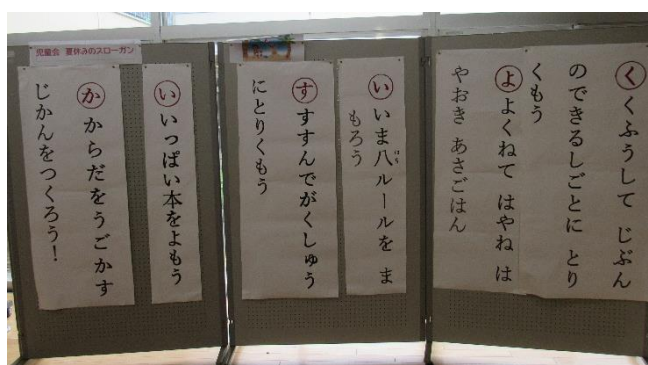 児童会 夏休みのスローガン
く くふうして じぶん
のできるしごとに とり
くもう
よ よくねて はやね は
やおき あさごはん
い いま八ルールを ま
はち
もろう
す すすんでがくしゅう
にとりくもう
い いっぱい本をよもう
か からだをうごかす
じかんをつくろう！